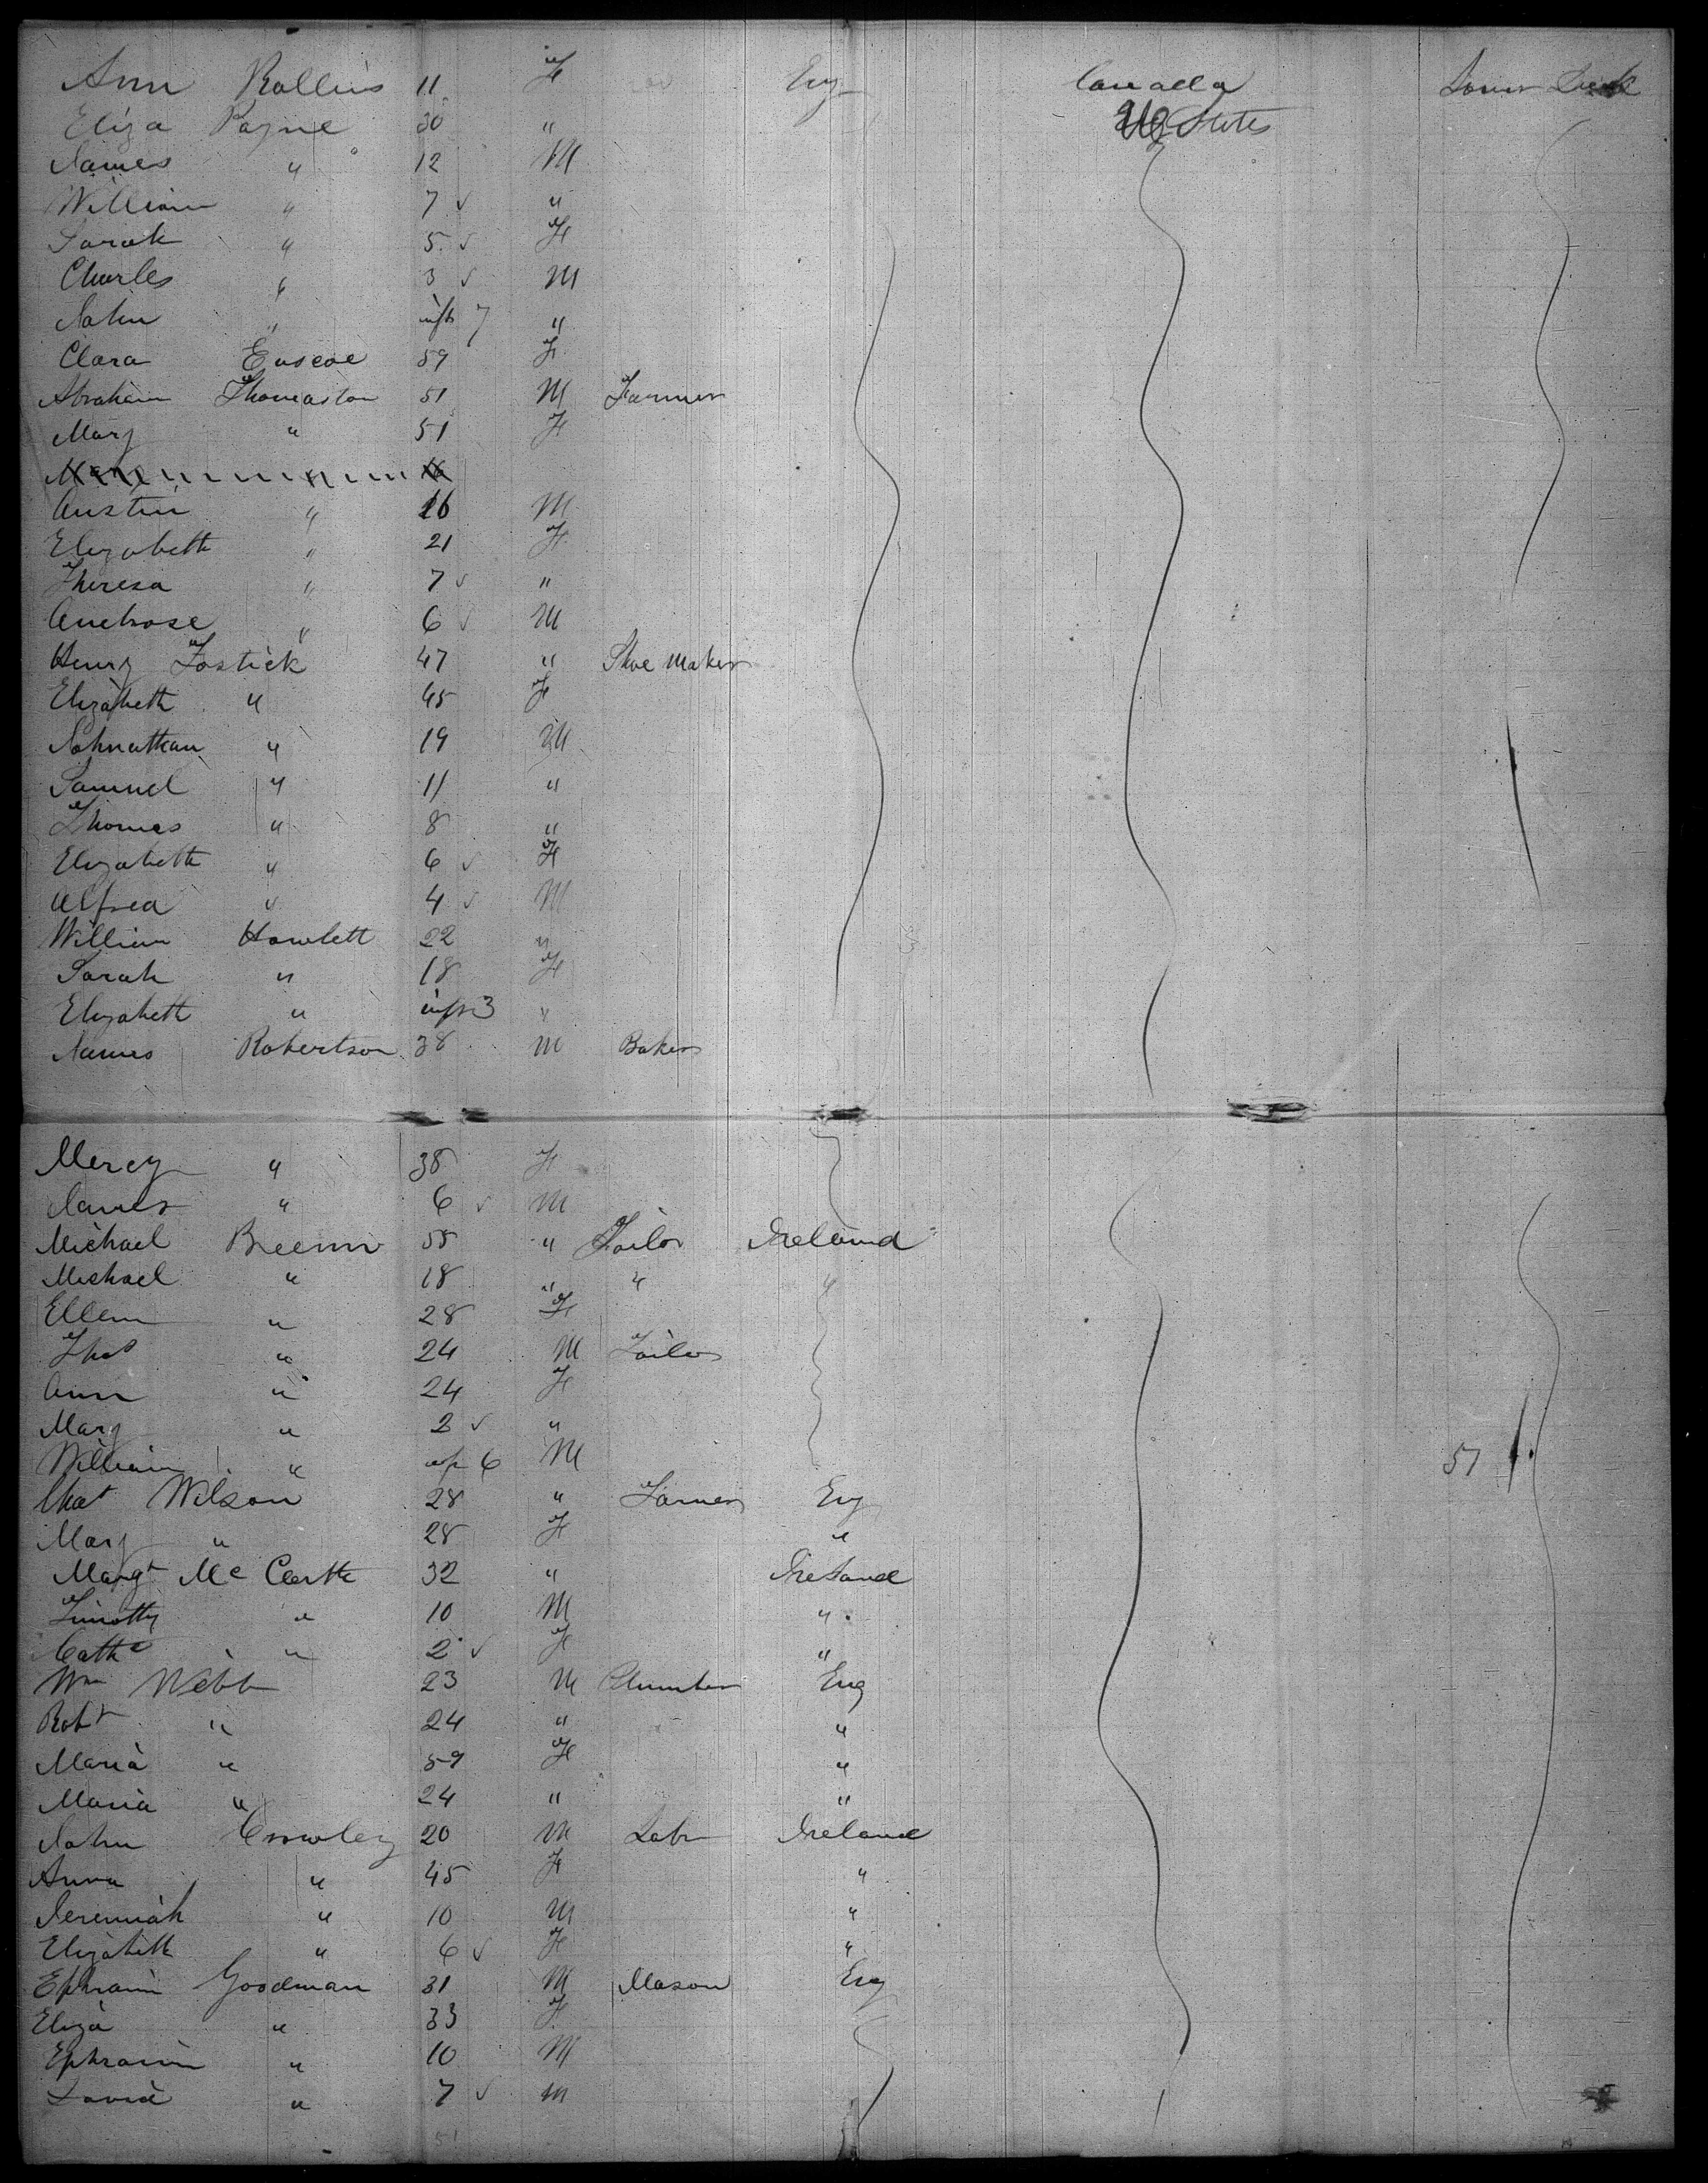 Ann Rollins 11 F Eng Canada Lower Deck
Eliza Payne 30 " U States
James " 12 M
William " 7 ✓ "
Sarah " 5 ✓ F
Charles " 3 ✓ M
John " inft 7 "
Clara Euscoe 59 F
Abraham Thomaston 51 M Farmer
Mary " 51 F
Mary " 16
Austin " 16 M
Elizabeth " 21 F
Theresa " 7 ✓ "
Ambrose " 6 ✓ M
Henry Fostick 47 " Shoe Maker
Elizabeth " 45 F
Johnathan " 19 M
Samuel " 11 "
Thomas " 8 "
Elizabeth " 6 ✓ F
Alfred " 4 ✓ M
William Howlett 22 "
Sarah " 18 F
Elizabeth " inft 3 "
James Robertson 38 M Baker
Mercy " 38 F
James " 6 ✓ M
Michael Breenn 58 " Tailor Ireland
Michael " 18 " " "
Ellen " 28 F
Thos " 24 M Tailor
Ann " 24 F
Mary " 2 ✓ "
William " inf 6 M 51
Chas Wilson 28 " Farmer Eng
Mary " 28 F "
Margt Mc Carth 32 " Ireland
Timothy " 10 M "
Cathe " 2 ✓ F "
Wm Webb 23 M Plumber Eng
Robt " 24 " "
Maria " 59 F "
Maria " 24 " "
John Crowley 20 M Labr Ireland
Anna " 45 F "
Jeremiah " 10 M "
Elizabeth " 6 ✓ F "
Ephraim Goodman 31 M Mason Eng
Eliza " 33 F
Ephraim " 10 M
David " 7 ✓ M
51